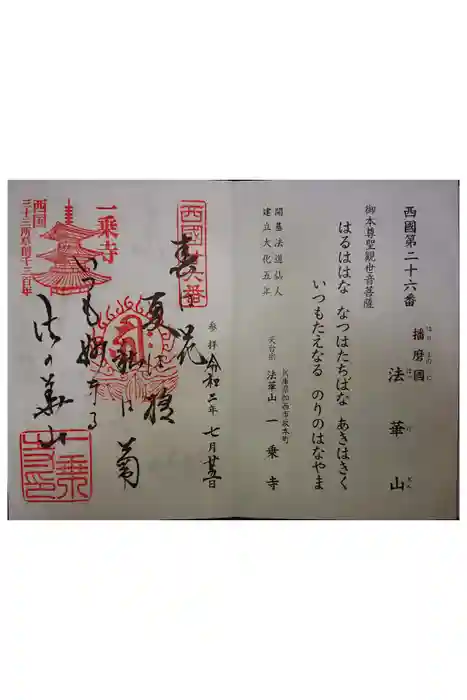 西國第二十六番
播磨國
はりまのくに
法華山
御本尊聖觀世音菩薩
はるははな なつはたちばな あきはきく
いつもたえなる のりのはなやま
開基法道仙人
建立大化五年
兵庫県加西市坂本町
天台宗 法華山 一乗寺
参拝 令和二年 七月
春は花
夏は橘
秋は菊
いつも妙なる
法の華山
一乗寺
西国
三十三所草創千三百年